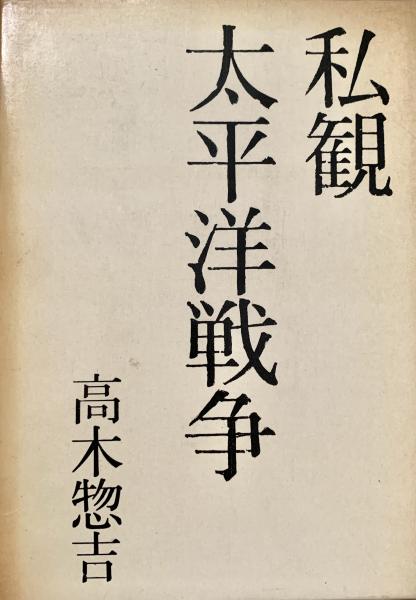 私観
太平洋戦争
高木惣吉